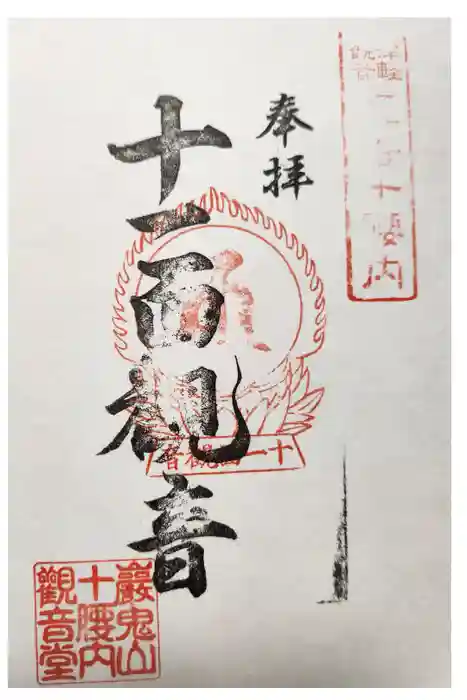 奉拝
十一面観音
十一面観音
巖鬼山
十腰内
觀音堂